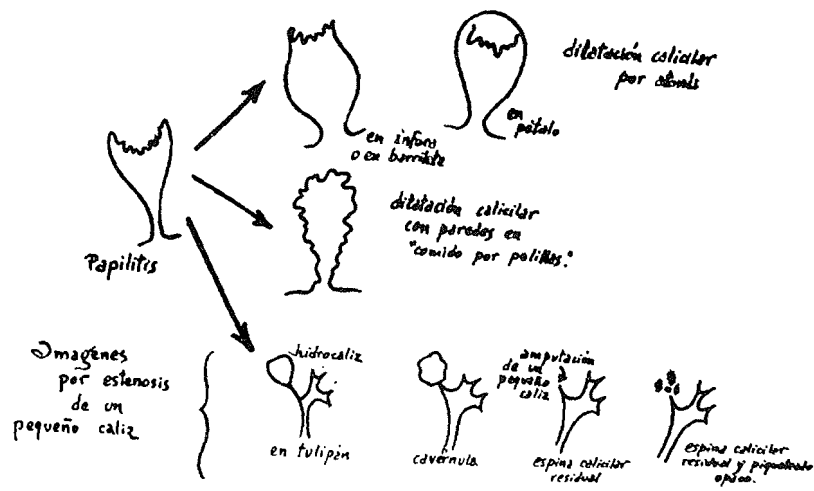 dilatación calicilar
por atonía
en
pétalo
en ánfora
o en barrilete
Papilitis
dilatación calicilar
con paredes en
"comido por polillas."
Imagenes
por estenosis
de un
pequeño caliz
hidrocaliz
en tulipán
cavérnula
amputación
de un
pequeño
caliz
espina calicilar
residual
espina calicilar
residual y piqueteado
opaco.